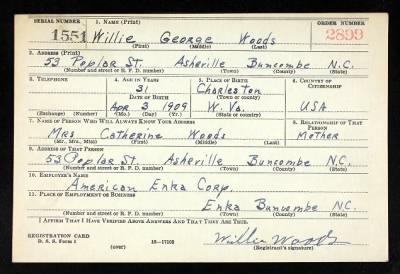 SERIAL NUMBER 1. NAME (Print) ORDER NUMBER
1551 Willie George Woods 2899
(First) (Middle) (Last)
2. ADDRESS (Print)
53 Poplar St. Asheville Buncombe N.C.
(Number and street or R. F. D. number) (Town) (County) (State)
3. TELEPHONE 4. AGE IN YEARS 5. PLACE OF BIRTH 6. COUNTRY OF CITIZENSHIP
31 Charleston
DATE OF BIRTH (Town or county)
Apr 3 1909 W. Va. USA
(Exchange) (Number) (Mo.) (Day) (Yr.) (State or country)
7. NAME OF PERSON WHO WILL ALWAYS KNOW YOUR ADDRESS 8. RELATIONSHIP OF THAT PERSON
Mrs Catherine Woods Mother
(Mr., Mrs., Miss) (First) (Middle) (Last)
9. ADDRESS OF THAT PERSON
53 Poplar St. Asheville Buncombe N.C.
(Number and street or R. F. D. number) (Town) (County) (State)
10. EMPLOYER'S NAME
American Enka Corp.
11. PLACE OF EMPLOYMENT OR BUSINESS
Enka Buncombe N.C.
(Number and street or R. F. D. number) (Town) (County) (State)
I AFFIRM THAT I HAVE VERIFIED ABOVE ANSWERS AND THAT THEY ARE TRUE.
REGISTRATION CARD
D. S. S. Form 1 (over) Willie Woods
(Registrant's signature)